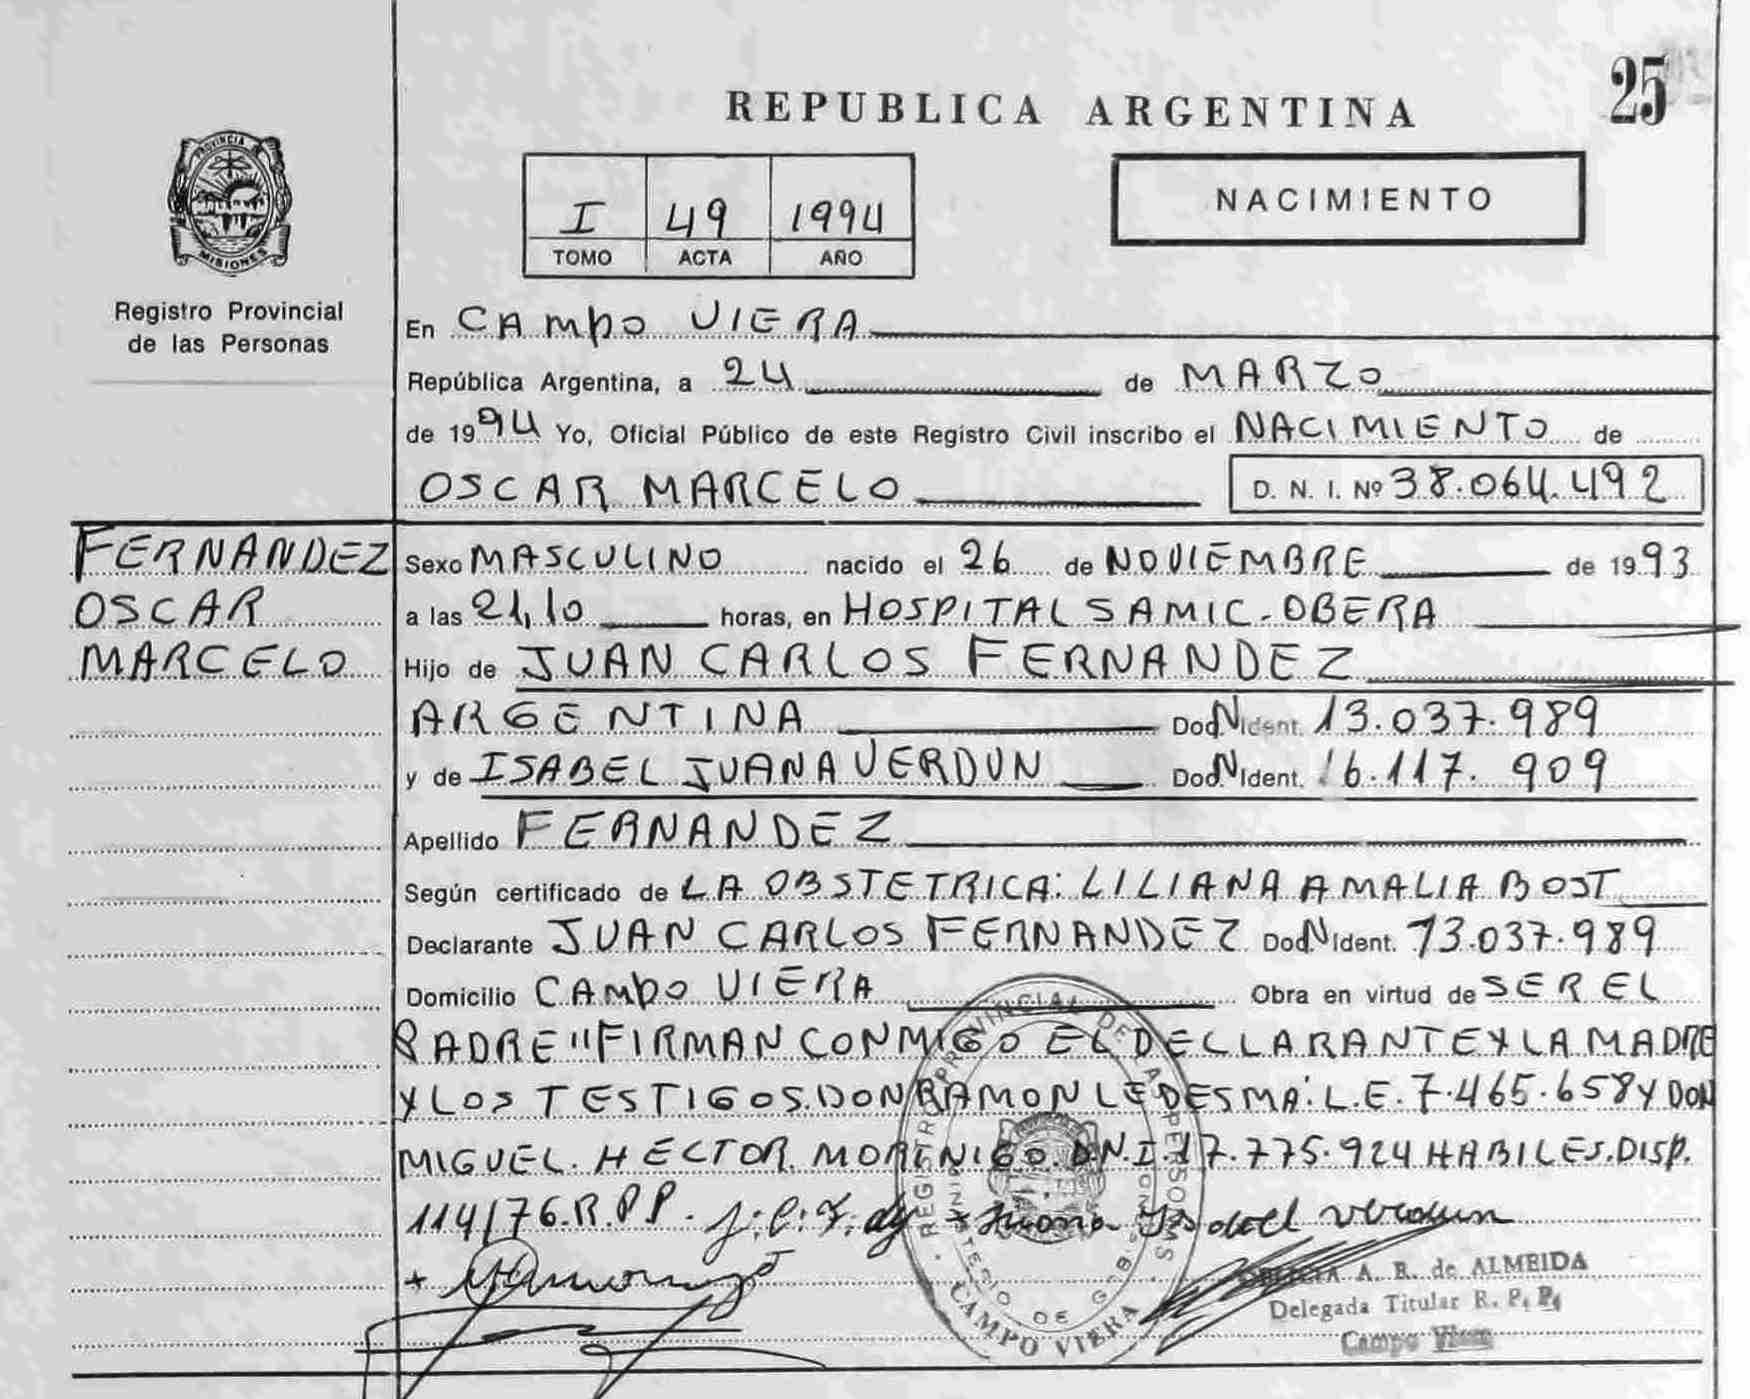 25
REPUBLICA ARGENTINA
PROVINCIA DE
MISIONES
I 49 1994
TOMO ACTA AÑO
NACIMIENTO
Registro Provincial
de las Personas
En CAMPO VIERA
República Argentina, a 24 de MARZO
de 1994 Yo, Oficial Público de este Registro Civil inscribo el NACIMIENTO de
OSCAR MARCELO D. N. I. Nº 38.064.492
FERNANDEZ
OSCAR
MARCELO
Sexo MASCULINO nacido el 26 de NOVIEMBRE de 1993
a las 21,10 horas, en HOSPITAL SAMIC-OBERA
Hijo de JUAN CARLOS FERNANDEZ
ARGENTINA Ident. 13.037.989
y de ISABEL JUANA VERDUN Ident. 16.117.909
Apellido FERNANDEZ
Según certificado de LA OBSTETRICA: LILIANA AMALIA BOST
Declarante JUAN CARLOS FERNANDEZ Ident. 13.037.989
Domicilio CAMPO VIERA Obra en virtud de SER EL
PADRE "FIRMAN CONMIGO EL DECLARANTE Y LA MADRE
Y LOS TESTIGOS. DON RAMON LEDESMA: L.E. 7.465.658 Y DON
MIGUEL. HECTOR. MORINIGO. D.N.I. 17.775.924 HABILES. DISP.
114/76.R.P.P. Juana Isabel verdun
REGISTRO PROVINCIAL DE LAS PERSONAS
MINISTERIO DE GOBIERNO
CAMPO VIERA
A. R. de ALMEIDA
Delegada Titular R. P. P.
Campo Viera